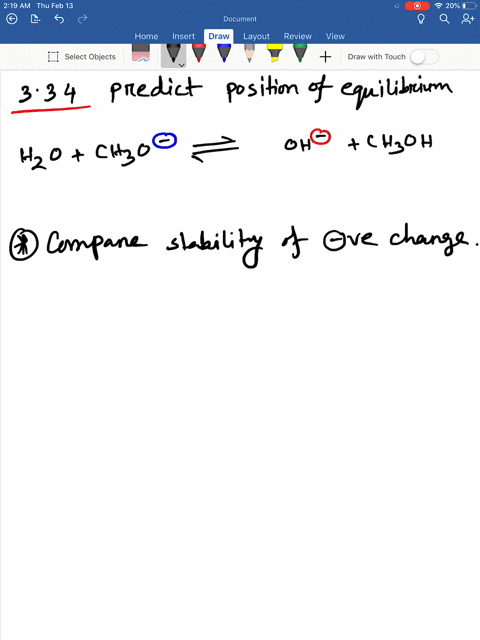 2:19 AM Thu Feb 13 20%
Document
Home Insert Draw Layout Review View
Select Objects Draw with Touch
3.34 predict position of equilibrium
H2O + CH3O⊖ ⇌ OH⊖ + CH3OH
Compare stability of ⊖ve change.